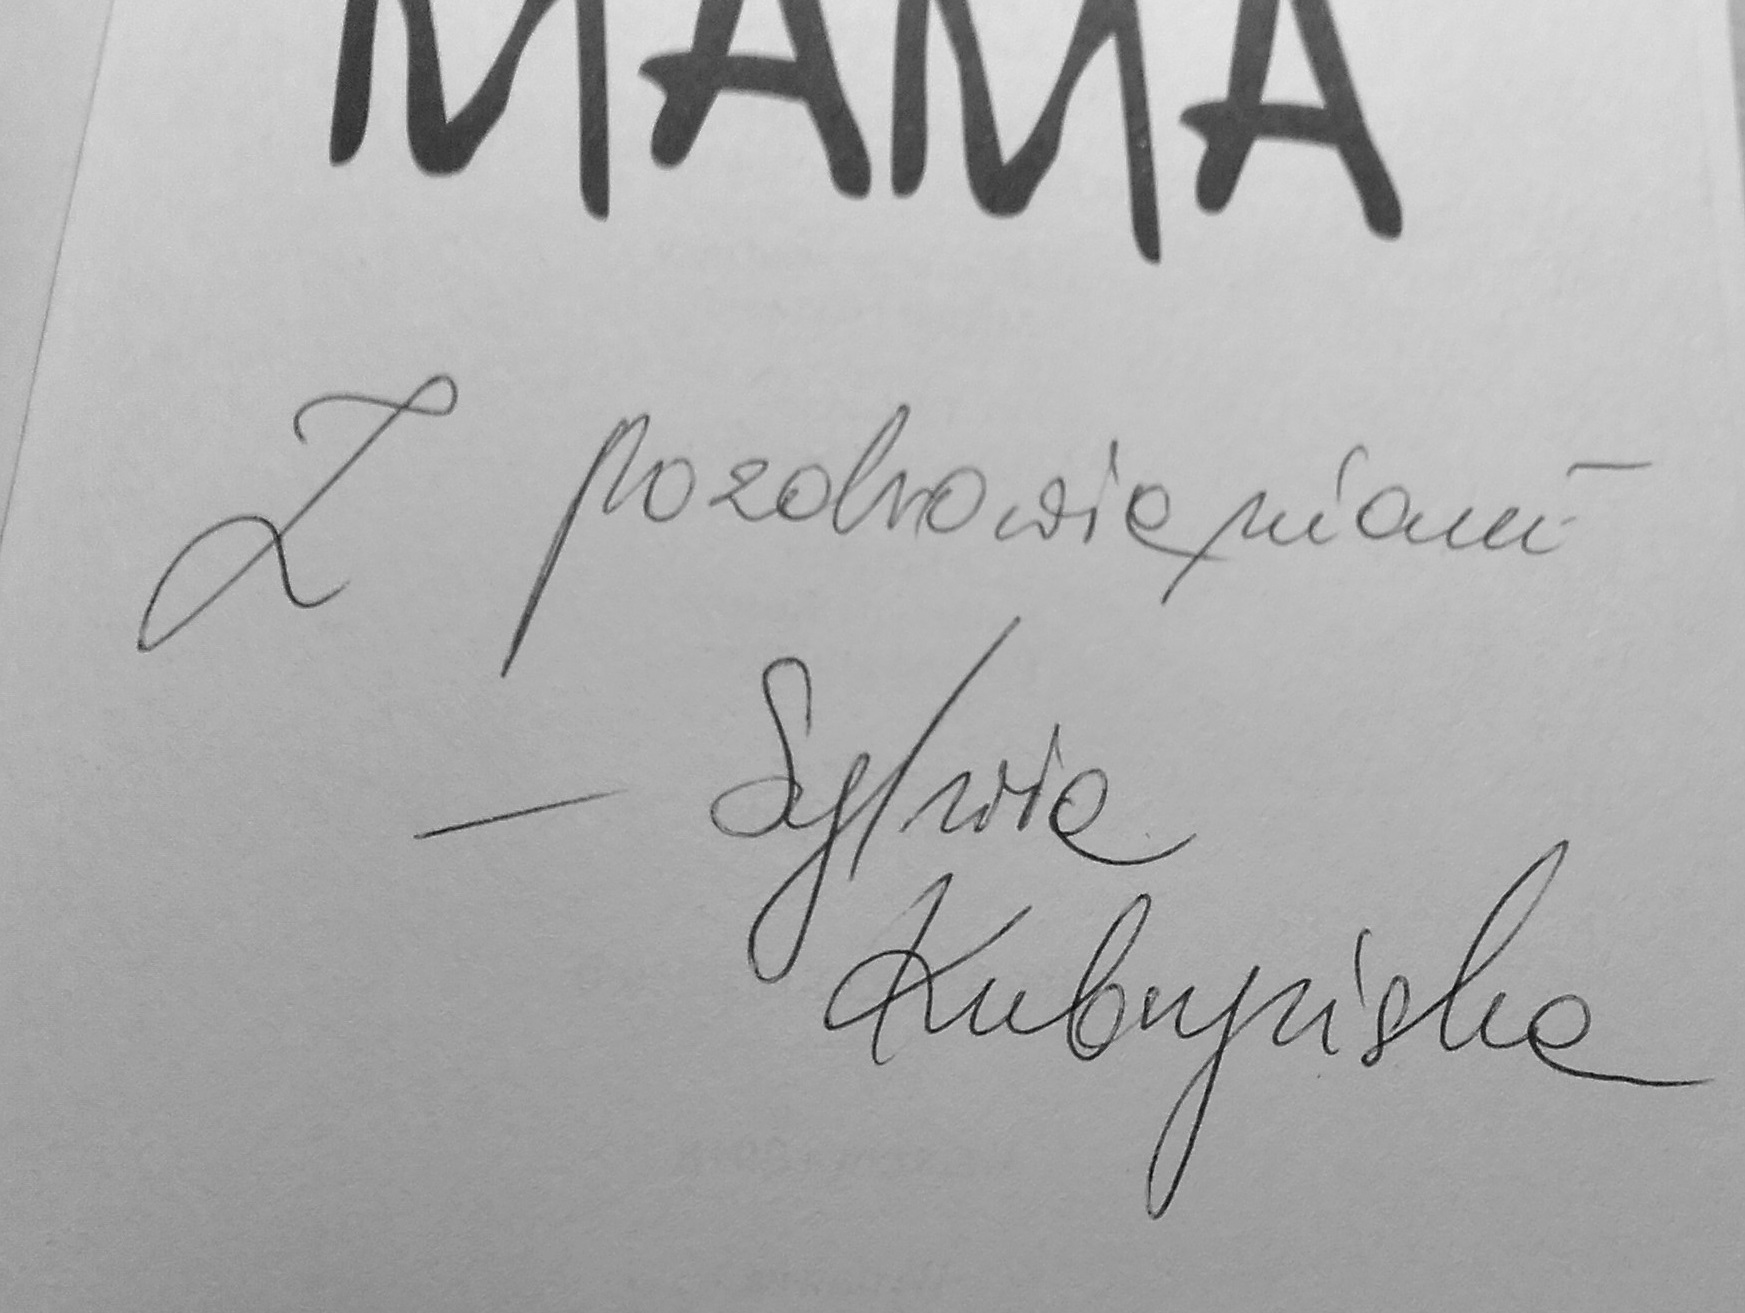 MAMA
Z pozdrowieniami
– Sylwia
Kubryńska